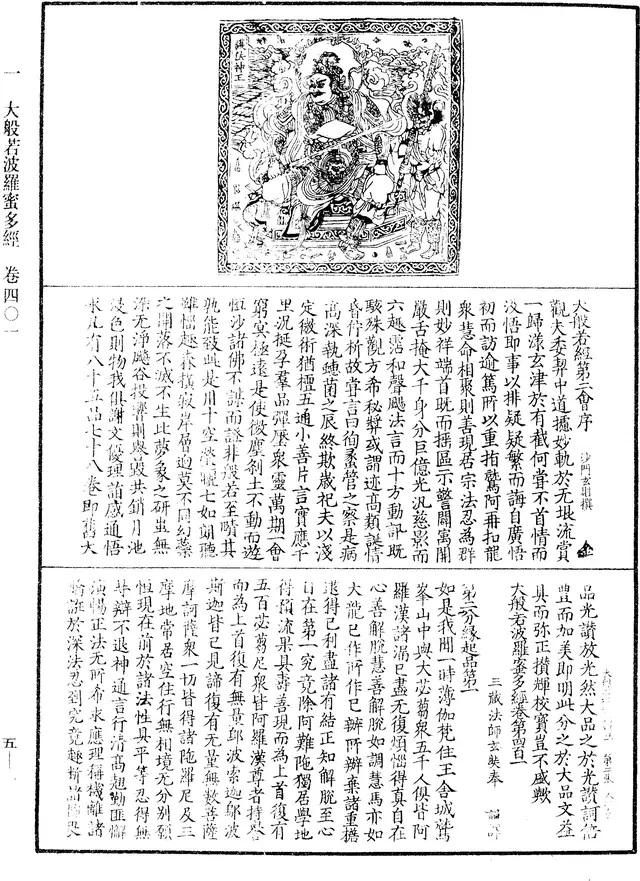 一 大般若波羅蜜多經 卷四〇一
護法神王
大般若經第二會序 沙門玄則撰
觀夫委契中道擯妙軌於无垠流賞
一歸漾玄津於有截何嘗不首情而
汲悟即事以排疑疑繁而誨自廣悟
初而訪逾篤所以重指鷲阿再扣龍
衆慧命相聚則善現居宗法忍為群
則妙祥端首既而搖區示警闢寓開
嚴舌掩大千身分巨億光汎慈影而
六趣霑和聲飈法言而十方動訢既
駭殊觀方希秘躅或謂迹高類誕情
昏析故嘗言曰徇蝨管之察是病
高深執蟪菌之辰終欺歲祀夫以淺
定微術猶擅五通小善片言實應千
里況挺孕羣品彈壓衆靈萬期一會
窮冥極遠是使微塵剎土不動而遊
恒沙諸佛不謀而證非般若至賾其
孰能致此是用十空瑩曉七如朗聽
雖惱趣森擾寂岸層迥莫不同幻蘂
之開落不滅不生比夢象之妍蚩無
染无淨颷谷投響則毀譽共銷月池
浸色則物我俱謝文優理諧感通悟
永凡有八十五品七十八卷即舊大
品光讚放光然大品之於光讚詞倍
豐而加美即明此分之於大品文益
具而弥正攢輝校寶豈不盛歟
大般若波羅蜜多經卷第四百一
三藏法師玄奘奉 詔譯
第二分緣起品第一
如是我聞一時薄伽梵住王舍城鷲
峯山中與大苾芻衆五千人俱皆阿
羅漢諸漏已盡无復煩惱得真自在
心善解脫慧善解脫如調慧馬亦如
大龍已作所作已辦所辦棄諸重擔
逮得己利盡諸有結正知解脫至心
自在第一究竟除阿難陁獨居學地
得預流果具壽善現而為上首復有
五百苾芻尼衆皆阿羅漢大勝生主
而為上首復有無量鄔波索迦鄔波
斯迦皆已見諦復有无量無數菩薩
摩訶薩衆一切皆得陁羅尼及三
摩地常居空住行無相境無分別願
恒現在前於諸法性具平等忍得無
导辯不退神通言行清高翹勤匪懈
演暢正法无所希求應理稱機離諸
矯誑於深法忍到究竟趣斷諸怖畏
五一